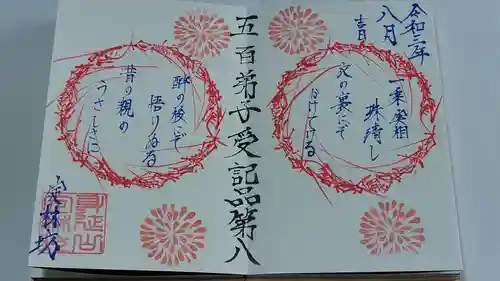 令和三年
八月
吉日
一乗実相
珠繍し
衣の裏にぞ
かけてける
五百弟子受記品第八
酔の後にぞ
悟りぬる
昔の親の
うれしさに
林坊